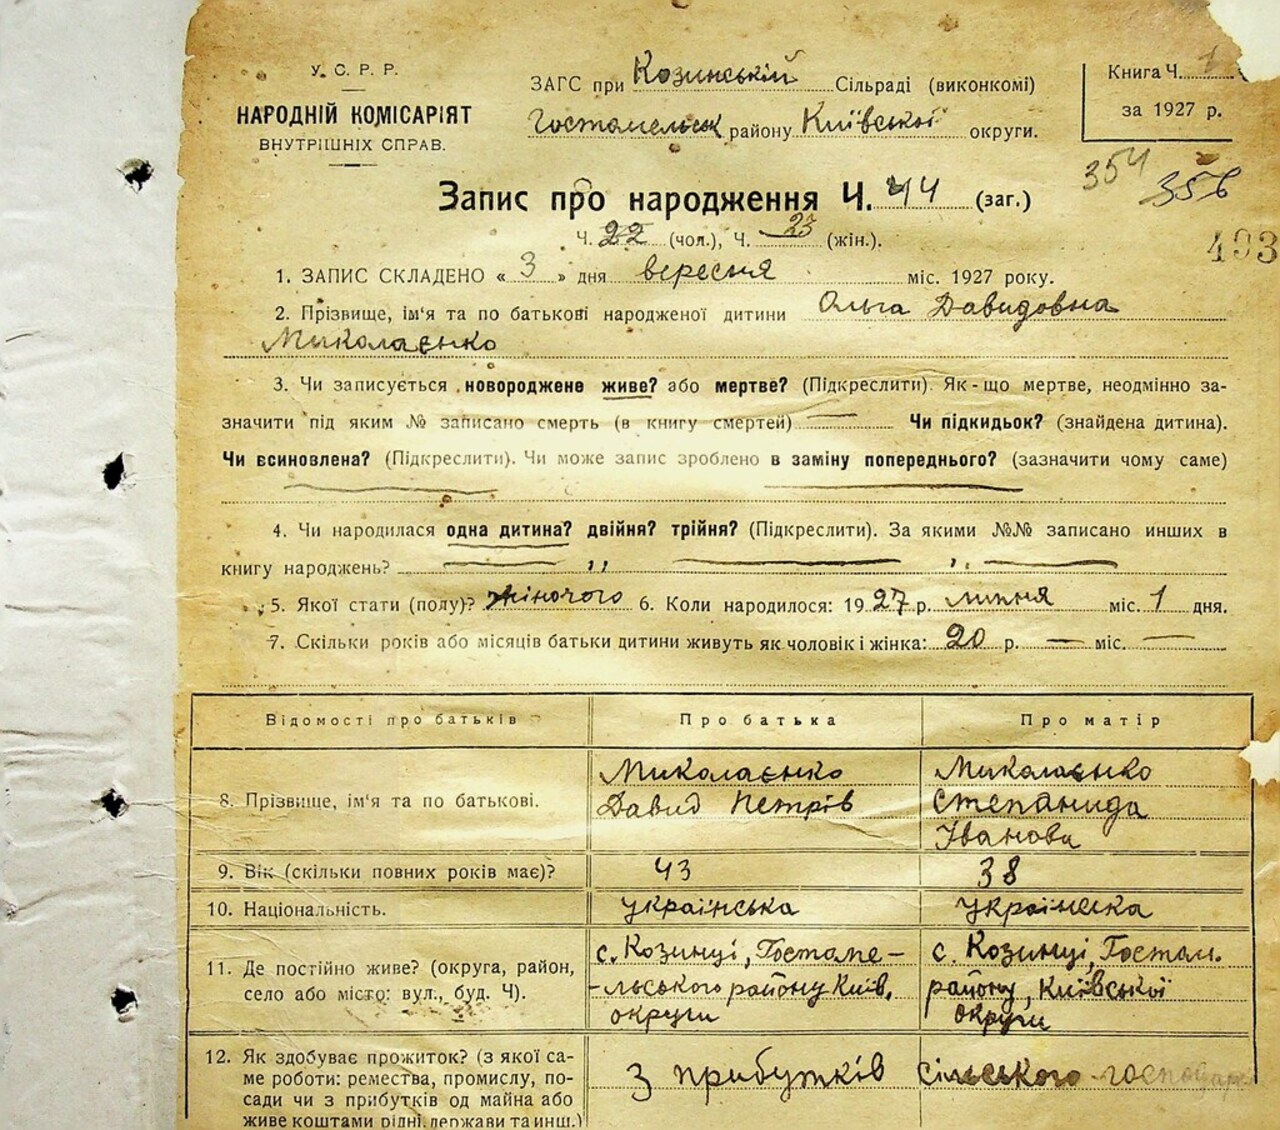 У. С. Р. Р.
НАРОДНІЙ КОМІСАРІЯТ
ВНУТРІШНІХ СПРАВ.
ЗАГС при Козинській Сільраді (виконкомі)
Гостомельськ району Київської округи.
Книга Ч. 1
за 1927 р.
354 356
Запис про народження Ч. 44 (заг.)
Ч. 22 (чол.), Ч. 23 (жін.).
493
1. ЗАПИС СКЛАДЕНО « 3 » дня вересня міс. 1927 року.
2. Прізвище, ім'я та по батькові народженої дитини Ольга Давидовна
Миколаєнко
3. Чи записується новороджене живе? або мертве? (Підкреслити). Як-що мертве, неодмінно за-
значити під яким № записано смерть (в книгу смертей) Чи підкидьок? (знайдена дитина).
Чи всиновлена? (Підкреслити). Чи може запис зроблено в заміну попереднього? (зазначити чому саме)
4. Чи народилася одна дитина? двійня? трійня? (Підкреслити). За якими №№ записано инших в
книгу народжень?
5. Якої стати (полу)? жіночого 6. Коли народилося: 1927 р. липня міс. 1 дня.
7. Скільки років або місяців батьки дитини живуть як чоловік і жінка: 20 р. — міс. —
Відомості про батьків Про батька Про матір
8. Прізвище, ім'я та по батькові.
Миколаєнко
Давид Петрів
Миколаєнко
Степанида
Іванова
9. Вік (скільки повних років має)? 43 38
10. Національність. українська українська
11. Де постійно живе? (округа, район,
село або місто: вул., буд. Ч).
с. Козинці, Гостоме-
-льського району Київ.
округи
с. Козинці, Гостом.
району, Київської
округи
12. Як здобуває прожиток? (з якої са-
ме роботи: ремества, промислу, по-
сади чи з прибутків од майна або
живе коштами рідні, держави та инш.)
З прибутків сільського господар